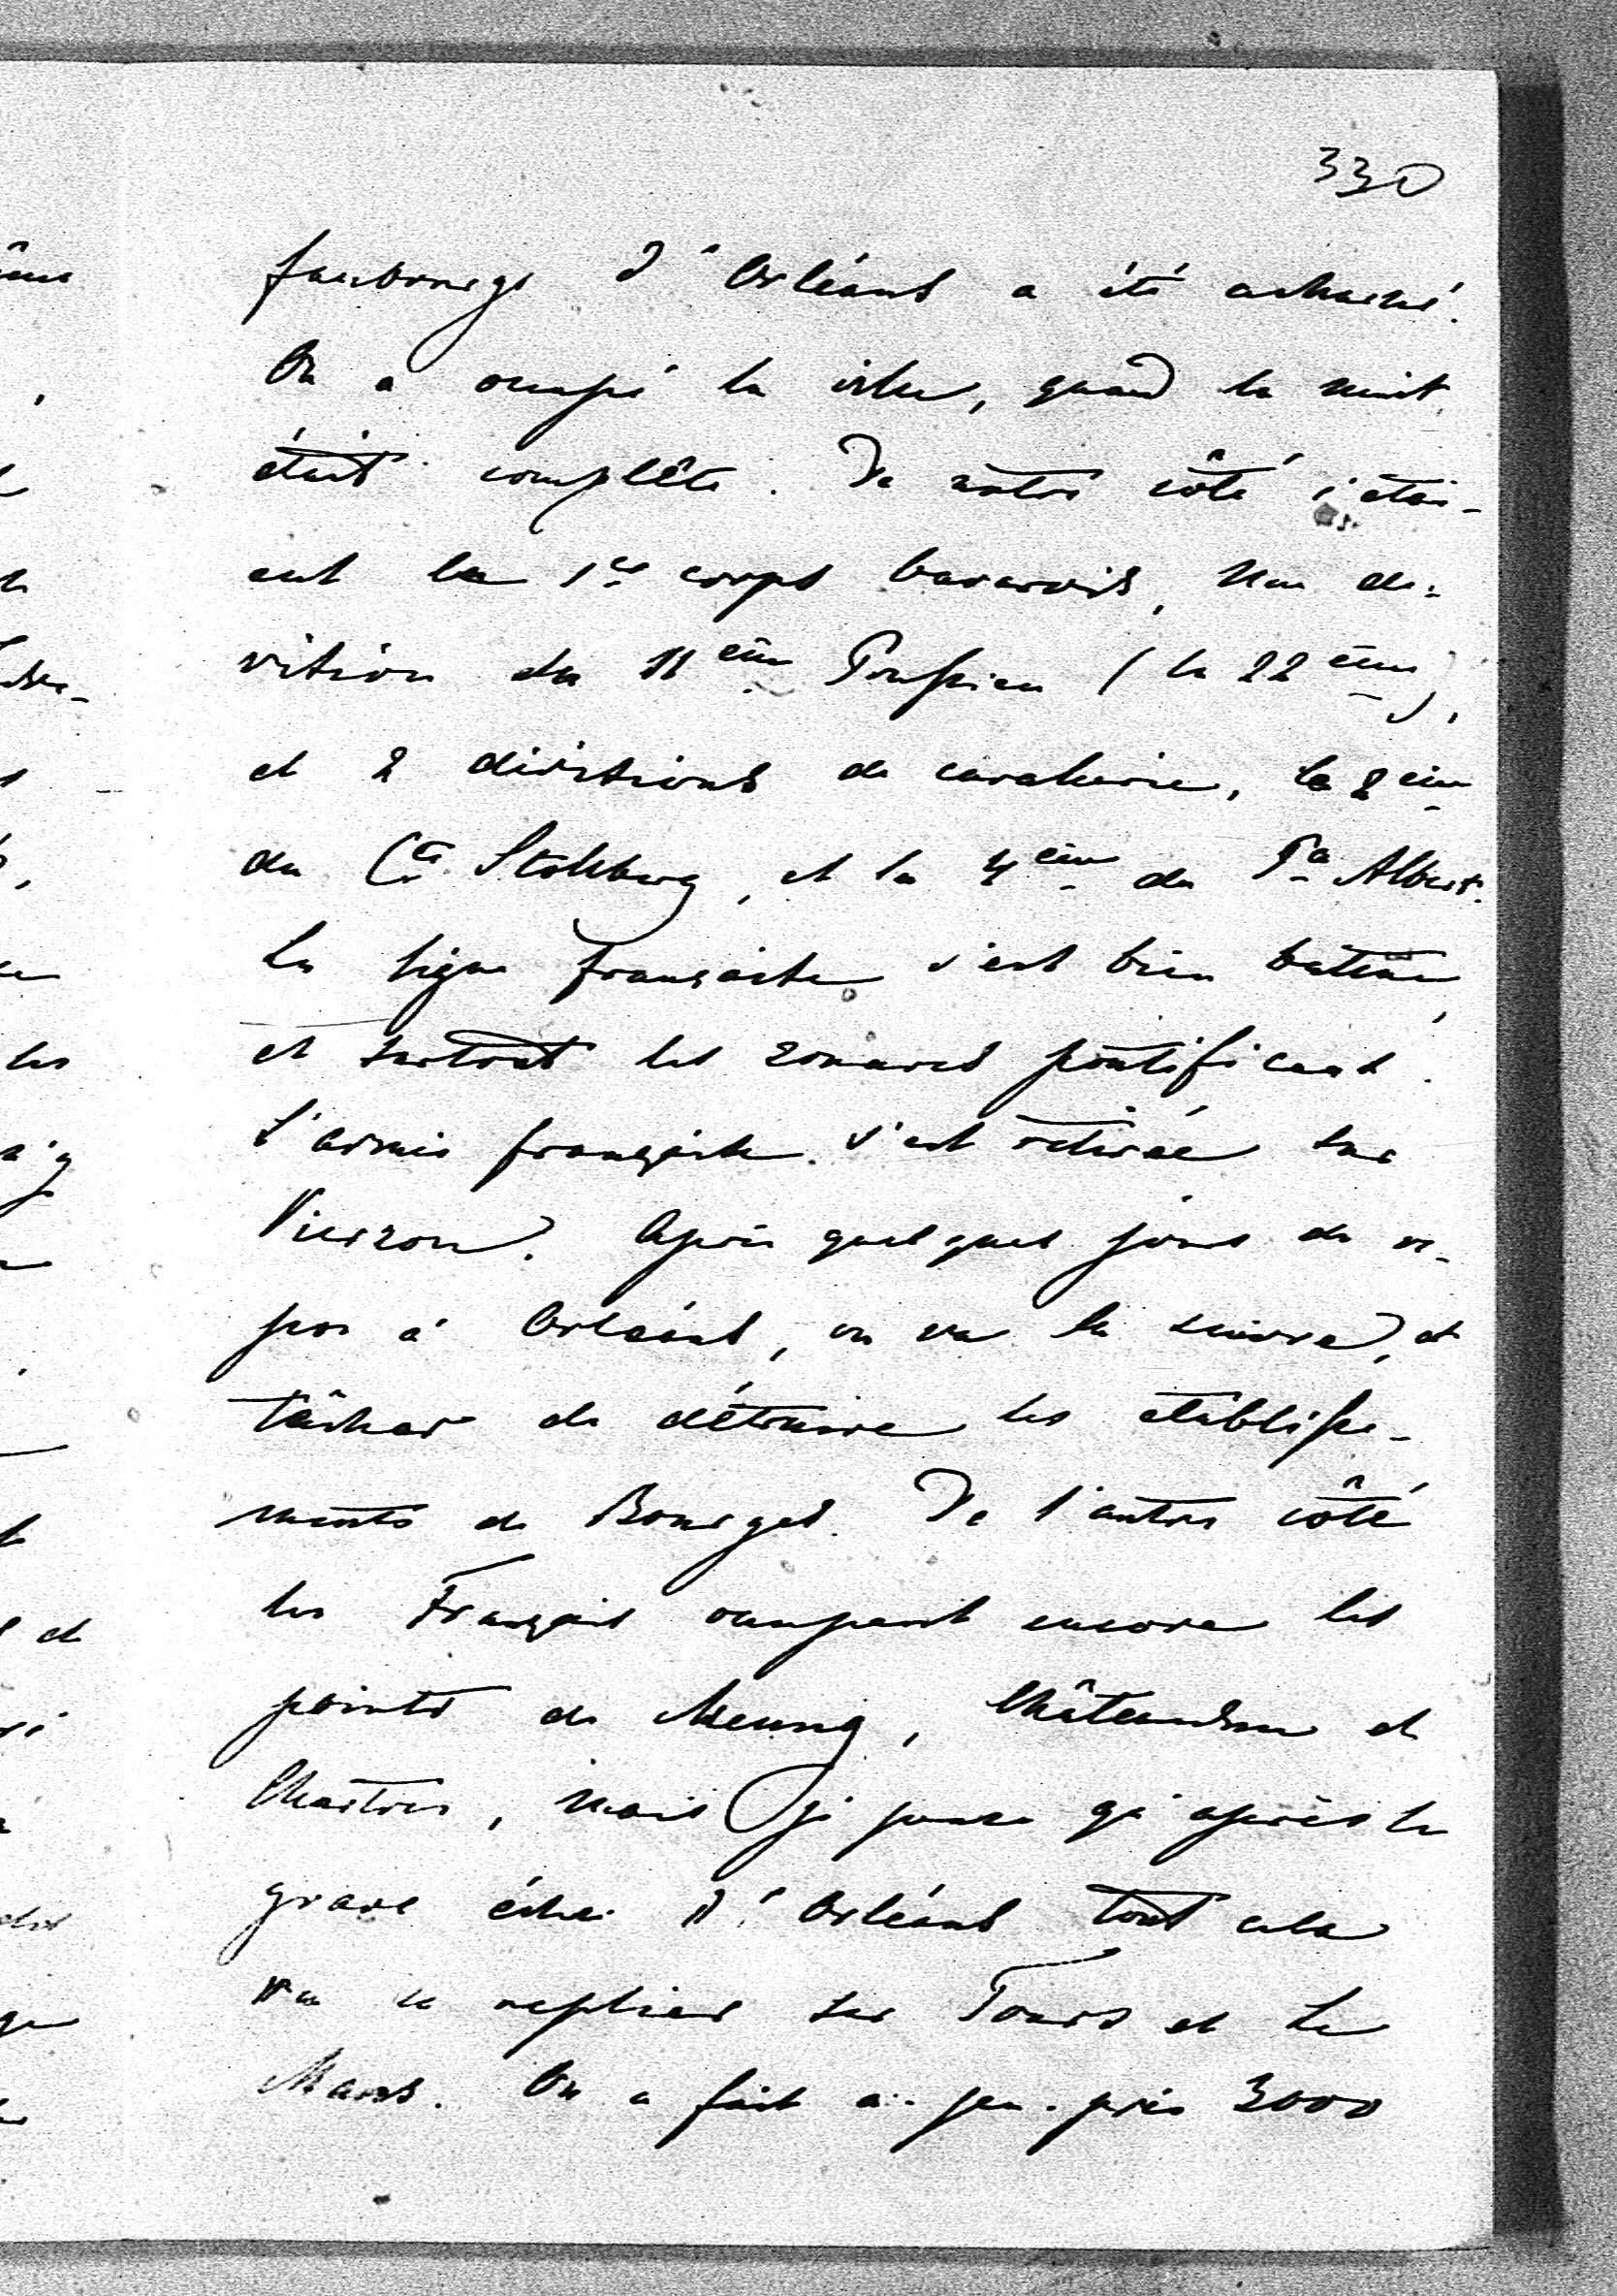 330
faubourgs d'Orléans a été acharné.
On a occupé la ville, quand la nuit
était complète. De notre côté c'étai-
ent le 1er corps bavarois, une di-
vision du 11ème Prussien (la 22ème),
et 2 divisions de cavalerie, la 2ème
du Cte Stolberg, et la 4ème du Pce Albert.
La ligne française s'est bien battue,
et surtout les zouaves pontificaux.
L'armée française s'est retirée sur
Vierzon. Après quelques jours de re-
pos à Orléans, on va la suivre, et
tâcher de détruire les établisse-
ments de Bourges. De l'autre côté
les Français occupent encore les
points de Meung, Châteaudun et
Chartres, mais je pense qu'après le
grave échec d'Orléans tout cela
va se replier sur Tours et Le
Mans. On a fait à-peu-près 3000